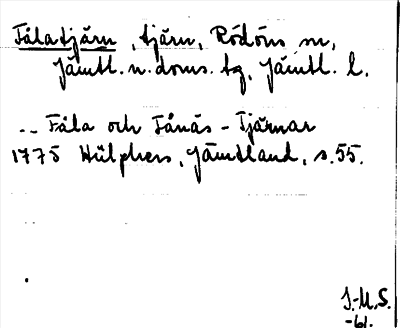 Fålatjärn, tjärn, Rödöns sn,
Jämtl. n. doms. tg, Jämtl. l.
.. Fåla och Fånäs-Tjärnar
1775 Hülphers, Jämtland, s. 55.
J-M.S.
-61.